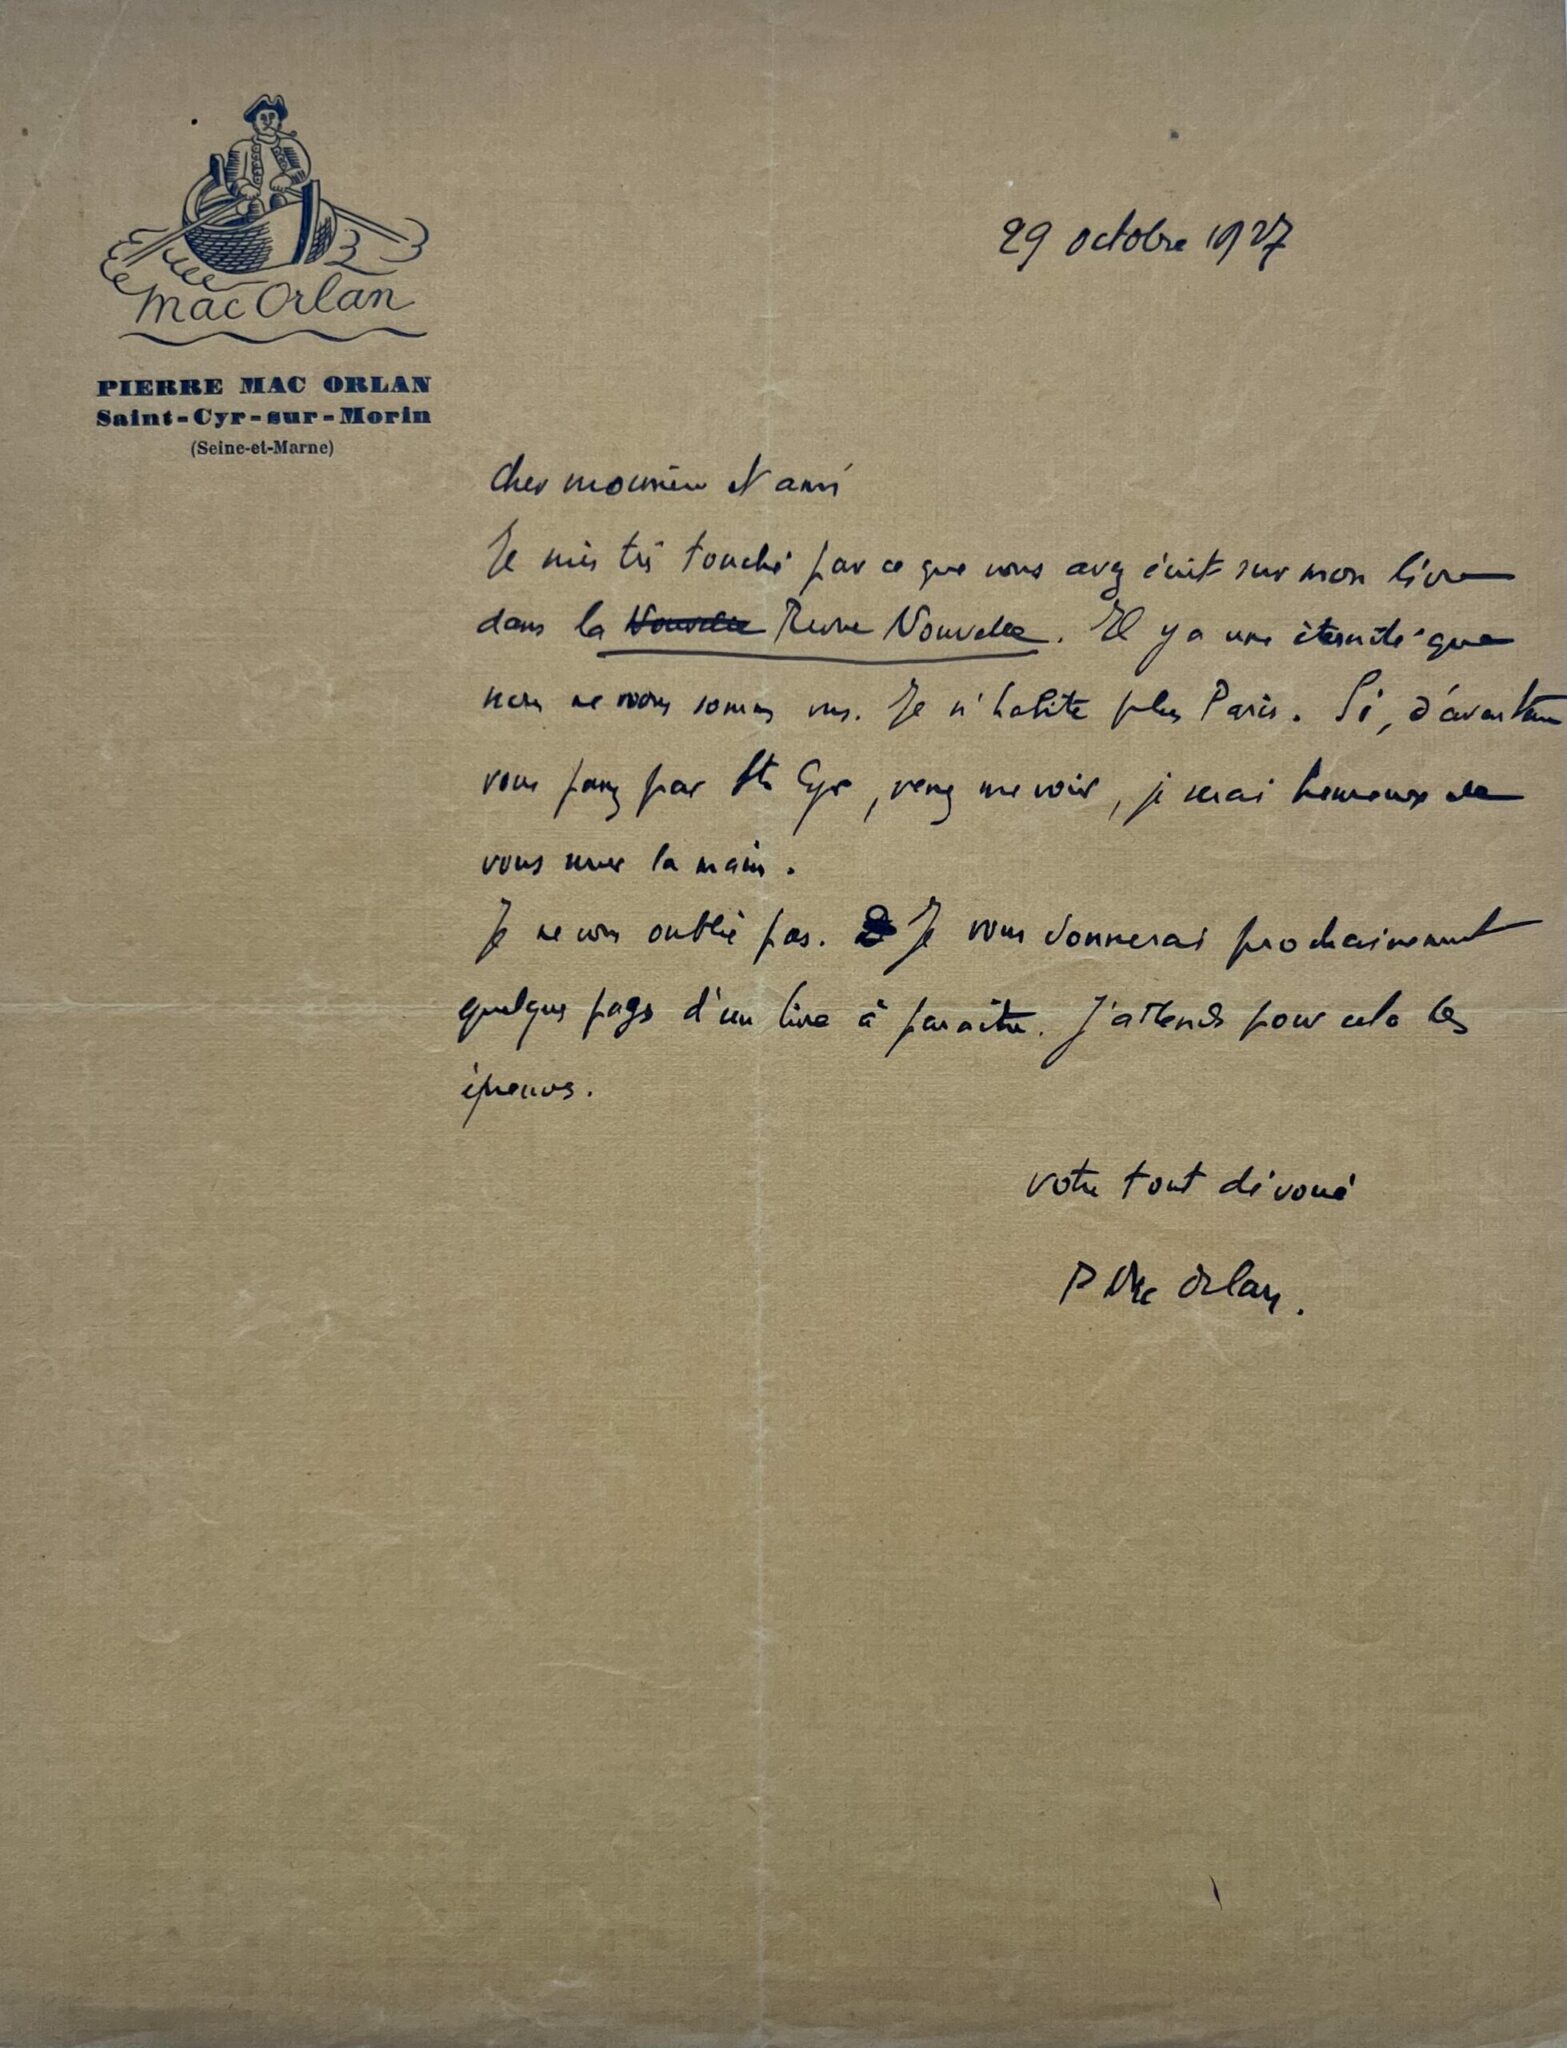 Mac Orlan
PIERRE MAC ORLAN
Saint-Cyr-sur-Morin
(Seine-et-Marne)
29 octobre 1927
Cher monsieur et ami
Je suis très touché par ce que vous avez écrit sur mon livre
dans la Nouvelle Revue Nouvelle. Il y a une éternité que
nous ne nous sommes vus. Je n'habite plus Paris. Si, d'aventure
vous passez par St Cyr, venez me voir, je serai heureux de
vous serrer la main.
Je ne vous oublie pas. Je vous donnerai prochainement
quelques pages d'un livre à paraître. J'attends pour cela les
épreuves.
votre tout dévoué
P Mac Orlan.